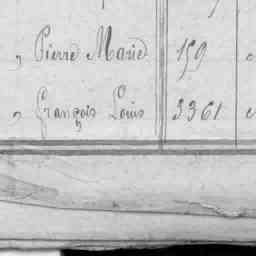 „ Pierre Marie 159
„ François Louis 3361